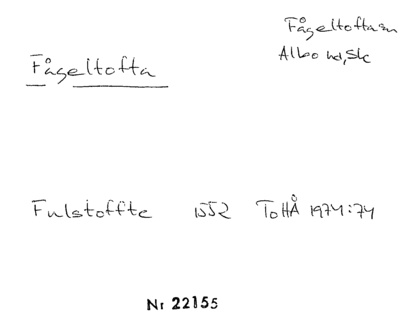 Fågeltofta sn
Albo hd, Sk
Fågeltofta
Fulstoffte 1552 ToHÅ 1974:74
Nr 22155